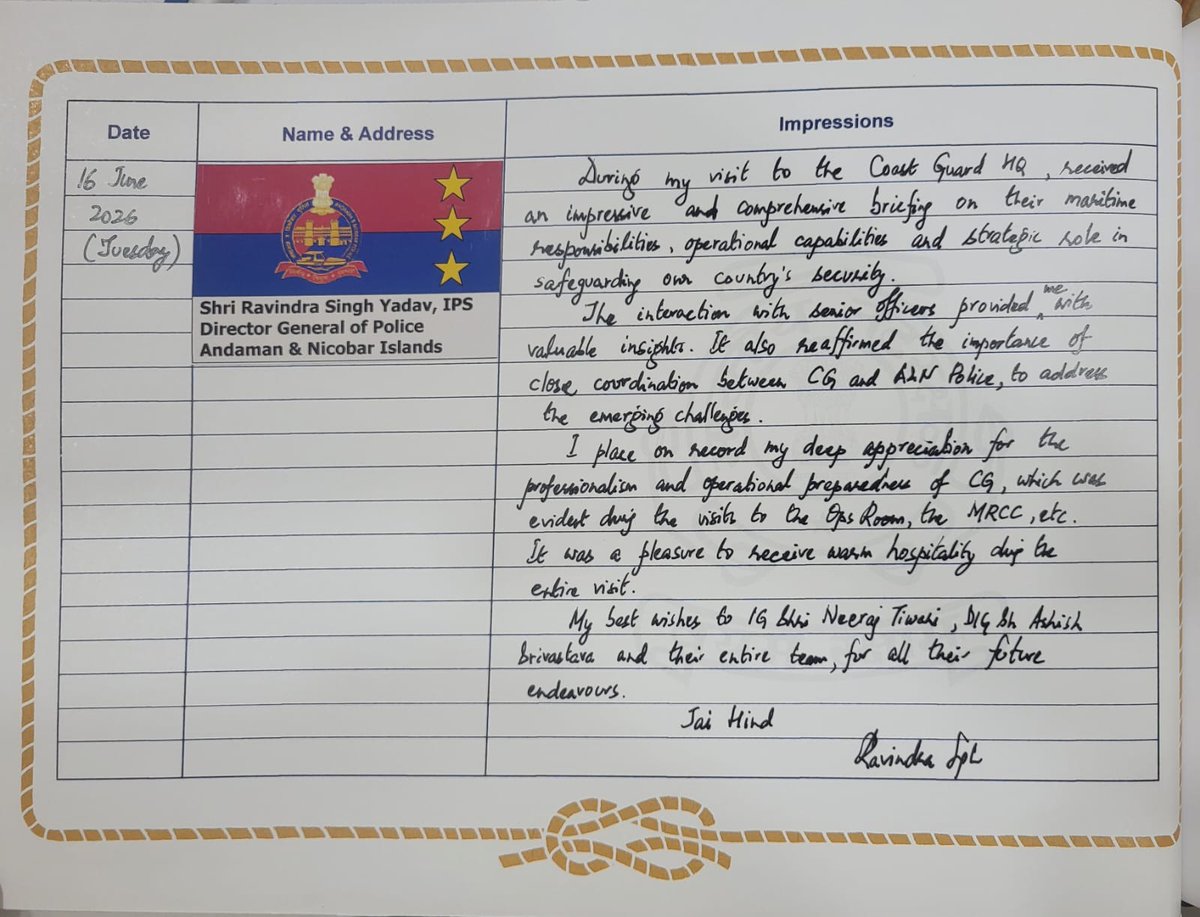 Date
Name & Address
Impressions
16 June
2026
(Tuesday)
Shri Ravindra Singh Yadav, IPS
Director General of Police
Andaman & Nicobar Islands
During my visit to the Coast Guard HQ, received
an impressive and comprehensive briefing on their maritime
responsibilities, operational capabilities and strategic role in
safeguarding our country's security.
The interaction with senior officers provided me with
valuable insights. It also reaffirmed the importance of
close coordination between CG and A&N Police, to address
the emerging challenges.
I place on record my deep appreciation for the
professionalism and operational preparedness of CG, which was
evident during the visits to the Ops Room, the MRCC, etc.
It was a pleasure to receive warm hospitality during the
entire visit.
My best wishes to IG Shri Neeraj Tiwari, DIG Sh Ashish
Srivastava and their entire team, for all their future
endeavours.
Jai Hind
Ravindra